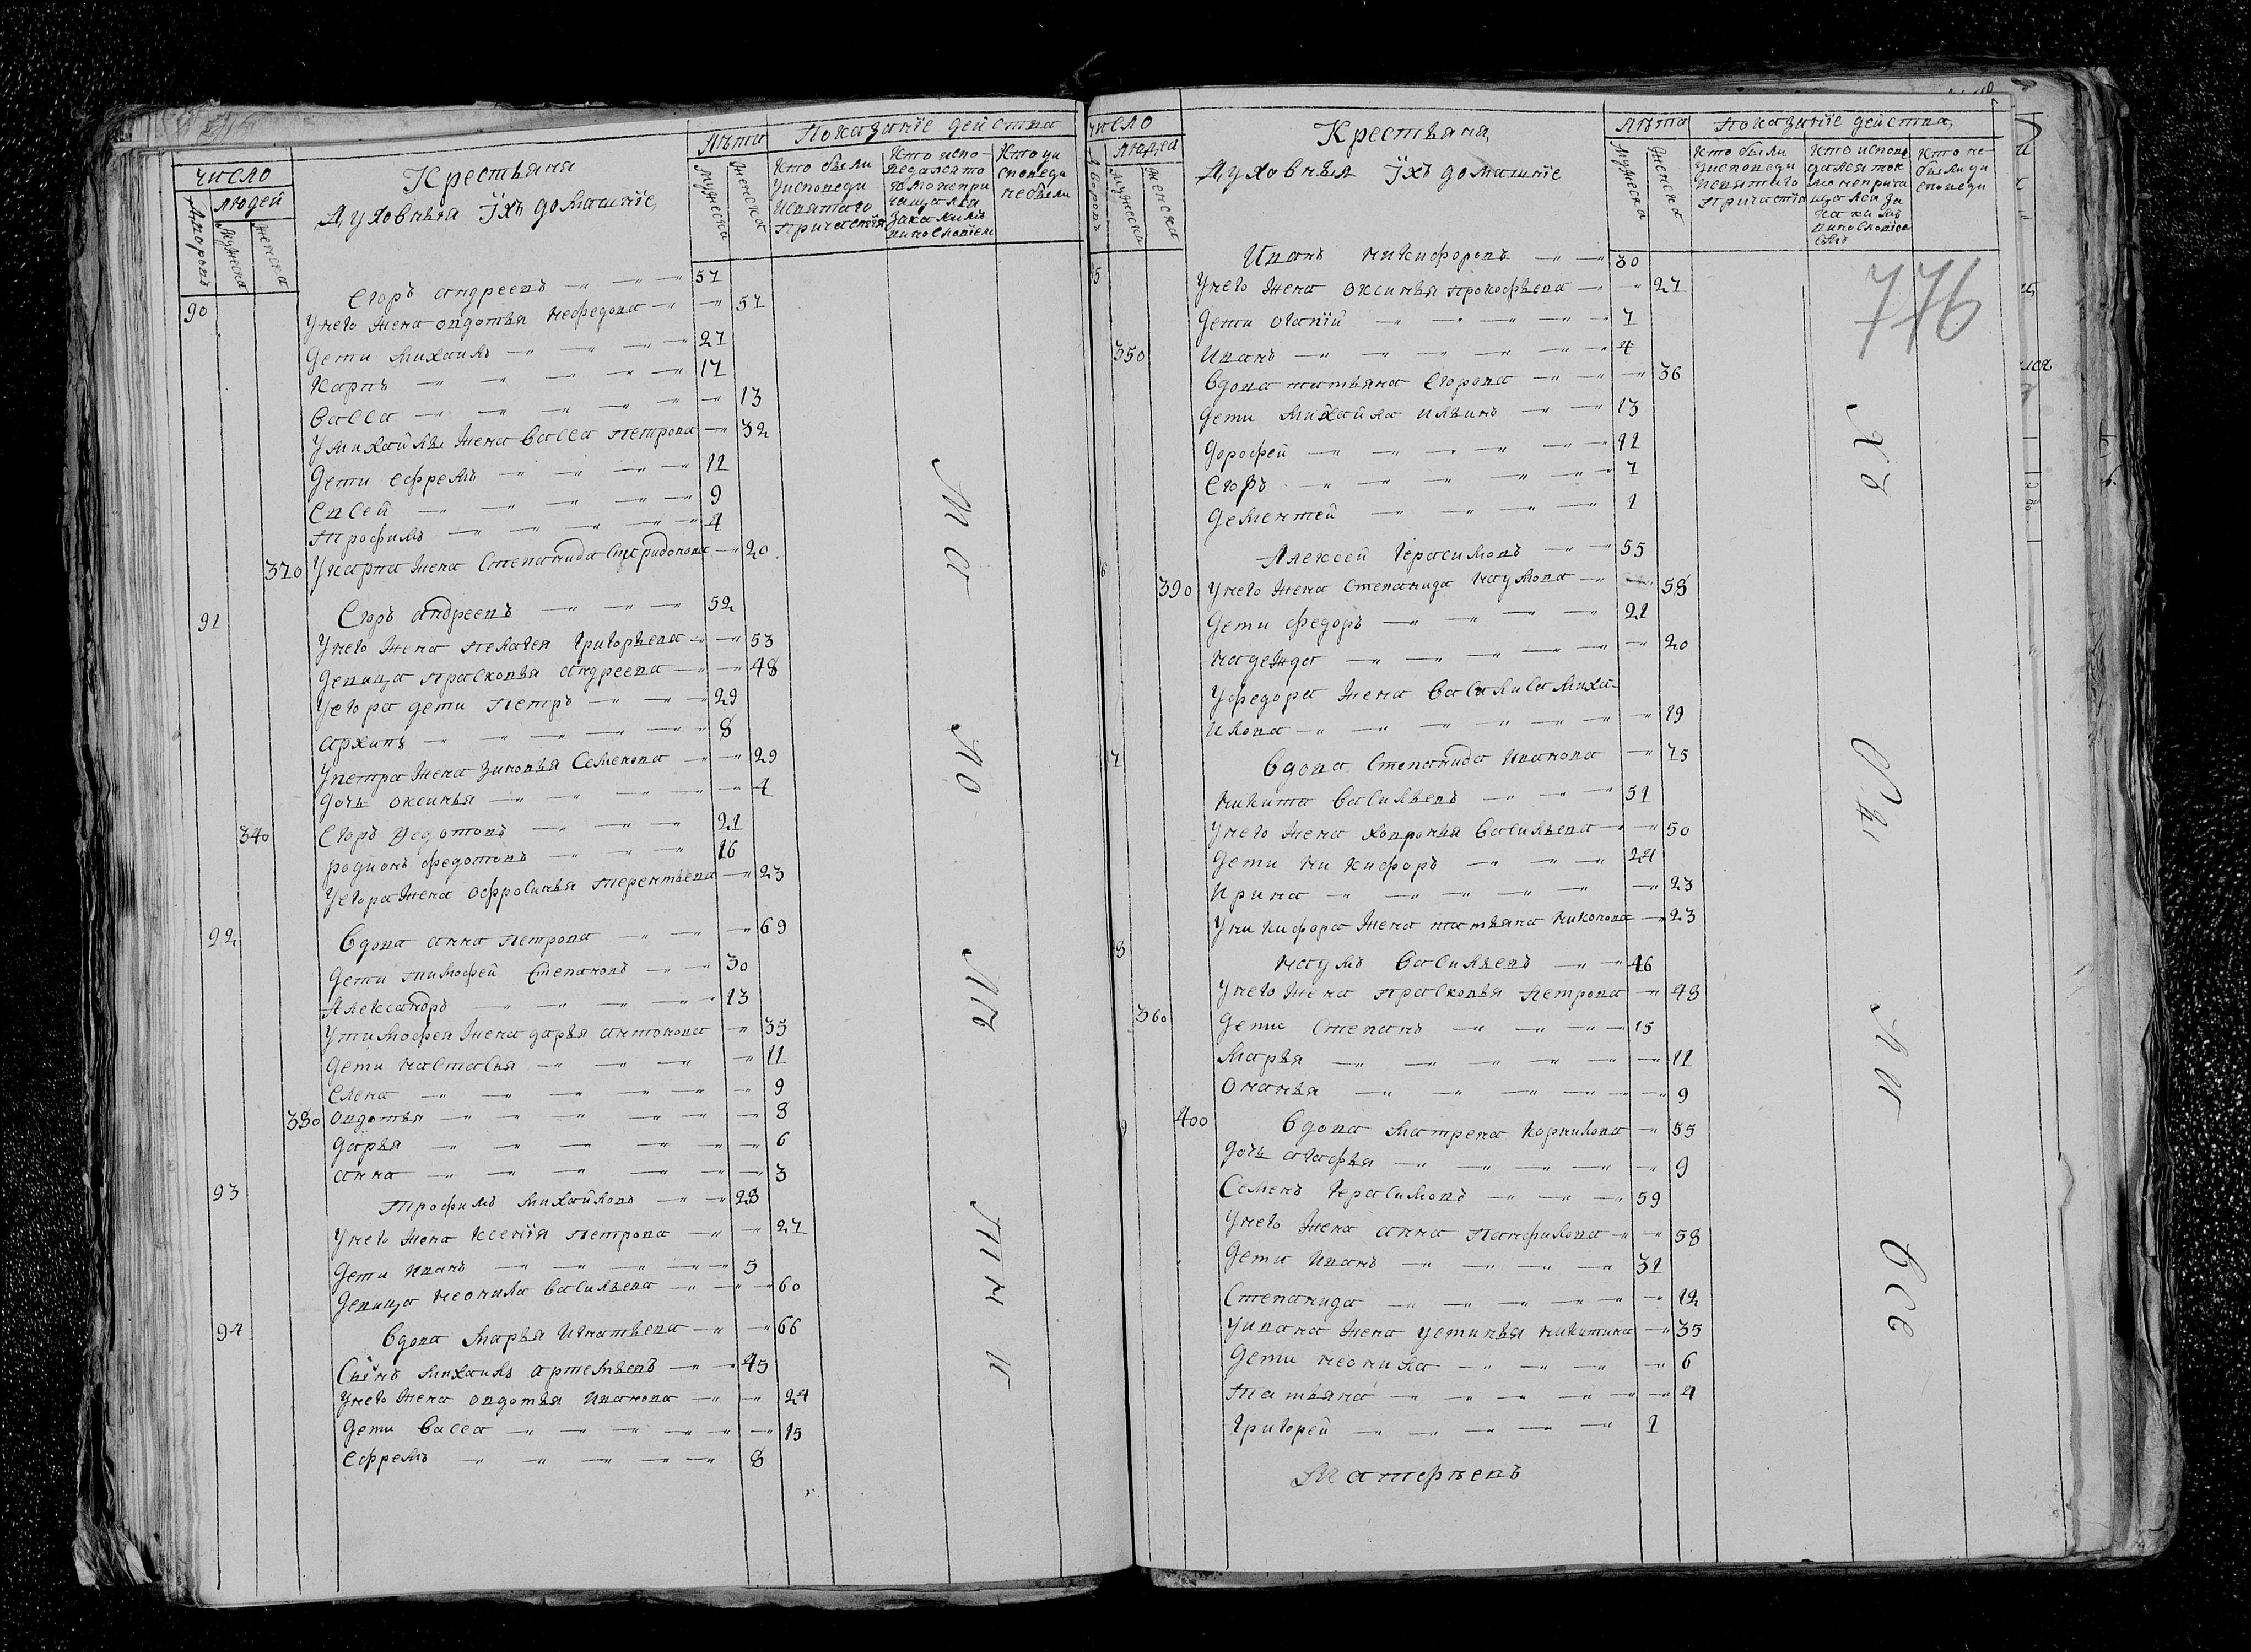 число
людей
Дворовъ
Мужеска
Женска
Крестьяня
Духовныя Їхъ домашніе
Лѣта
Мужеска
Женска
Показаніе действа
Кто были
Уисповеди
Исвятаго
Причастія
Кто испо-
ведался то
Кмо непри
чащался
Закакимъ
винословіем
Кто уи
споведи
небыли
90 Егоръ андреевъ 57
Унего Жена овдотья нефедова 57
Дети Михаилъ 27
Карпъ 17
Васса 13
Умихайлы Жена Васса Петрова 32
Дети ефремъ 11
Евсей 9
Трофимъ 4
370 Укарпа Жена Степанида Спиридонова 20
91 Егоръ андреевъ 52
Унего Жена Пелагея Григорьева 53
Девица Прасковья андреева 48
Уегора дети Петръ 29
архипъ 8
Упетра Жена Зиновья Семенова 29
Дочь оксинья 4
340 Егоръ Федотовъ 21
родионъ федотовъ 16
Уегора Жена офросинья терентьева 23
92 Вдова анна Петрова 69
Дети тимофей Степановъ 30
Александръ 13
Утимофея Жена дарья антонова 35
Дети настасья 11
Елена 9
380 овдотья 8
дарья 6
анна 3
93 Трофимъ михайловъ 28
Унего Жена Ксенія Петрова 27
Дети Иванъ 5
Девица неонила Васильева 60
94 Вдова Марья Игнатьева 66
Сынъ михаилъ артемьевъ 45
Унего Жена овдотья Иванова 24
Дети Васса 15
ефремъ 8
число
людей
Дворовъ
Мужеска
Женска
Крестьяня
Духовныя Їхъ домашніе
Лѣта
Мужеска
Женска
Показаніе действа
Кто были
Уисповеди
Исвятаго
Причастія
Кто испове
дался ток
мо неприча
щался за
какимъ
винословіе
емъ
Кто не-
были уи
споведи
776
5 Иванъ никифоровъ 30
Унего Жена оксинья прокофьева 27
Дети огапій 7
350 Иванъ 4
Вдова татьяна Егорова 36
Дети Михайла ильинъ 13
дорофей 11
Егоръ 7
дементей 1
6 Алексей Герасимовъ 55
390 Унего Жена Степанида наумова 58
Дети федоръ 21
надежда 20
Уфедора Жена Васалиса миха-
илова 19
7 Вдова Степанида Иванова 75
никита Васильевъ 51
Унего Жена ховронья Васильева 50
Дети никифоръ 24
Ирина 23
Уникифора Жена татьяна никонова 23
8 наумъ Васильевъ 46
Унего Жена прасковья Петрова 48
360 Дети Степанъ 15
Марья 11
Онанья 9
9 400 Вдова Матрена Корнилова 55
дочь агафья 9
Семенъ Герасимовъ 59
Унего Жена анна Панфилова 58
Дети Иванъ 31
Степанида 12
Уивана Жена устинья никитина 35
Дети неонила 6
Татьяна 4
Григорей 1
Матфѣевъ